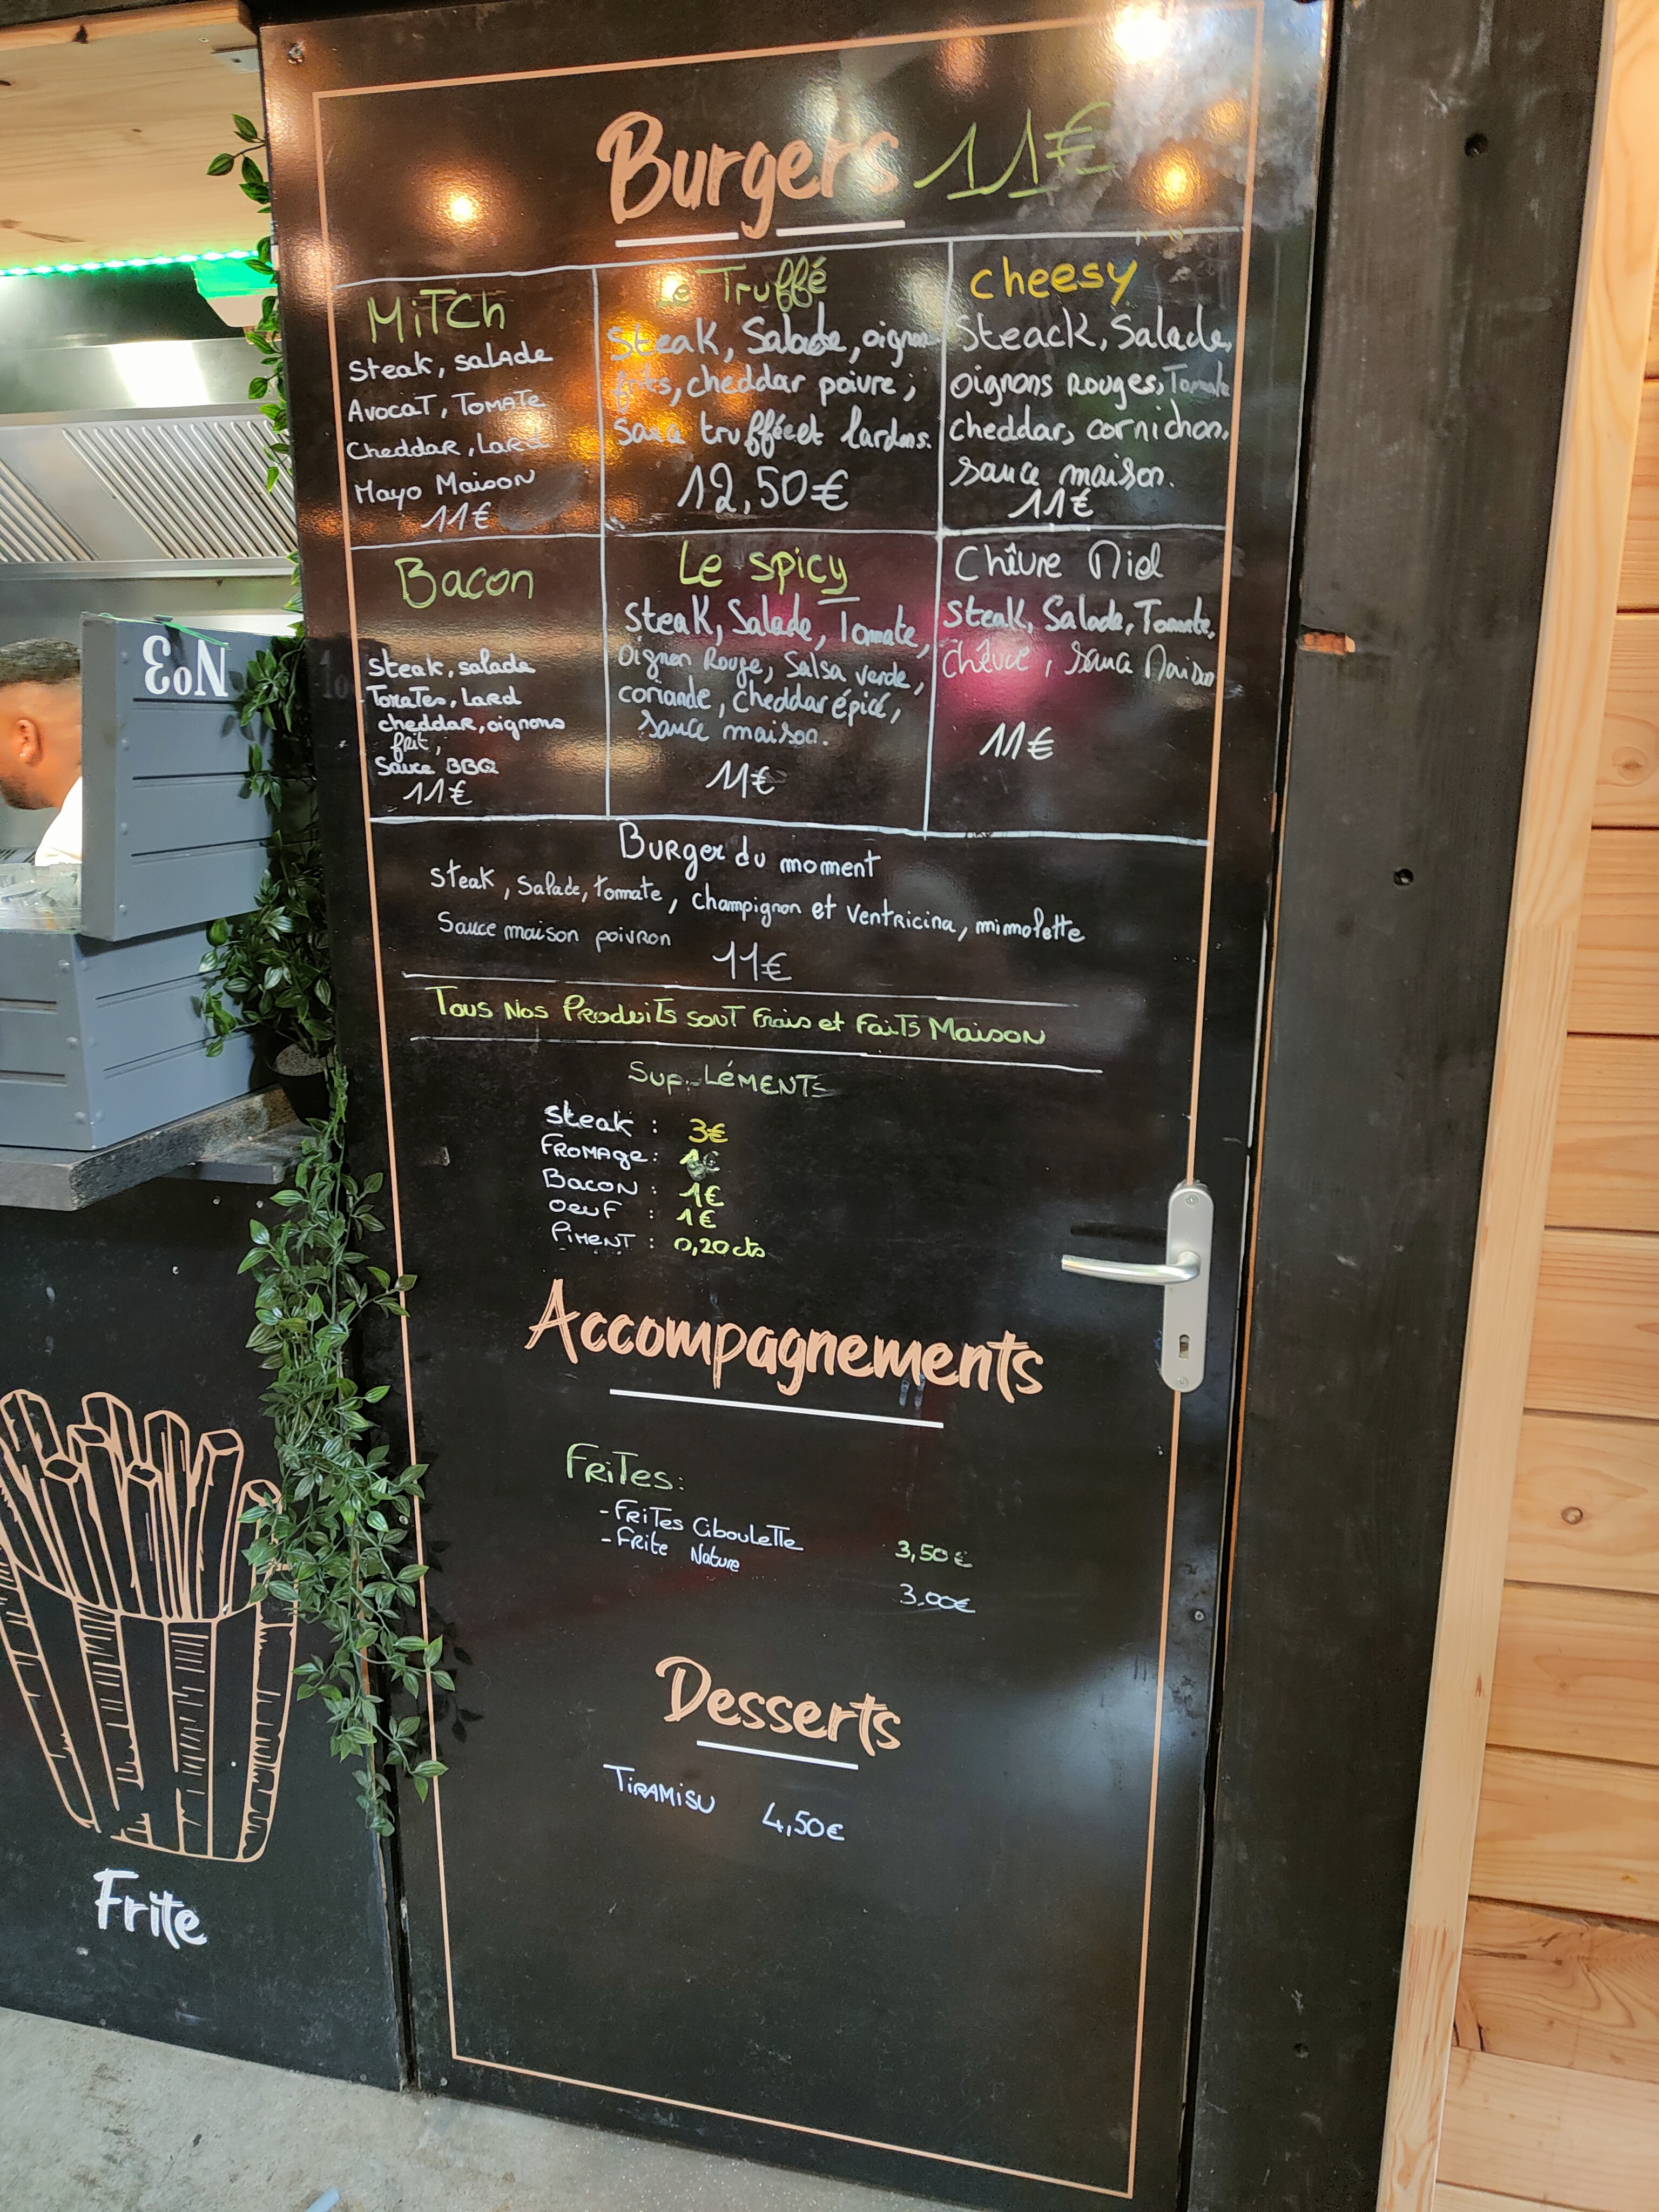 Burgers 11€
MiTCh
Steak, salade
Avocat, Tomate
Cheddar, Lard
Mayo Maison
11€
Le Truffé
Steak, Salade, oignons
frits, cheddar poivre,
Sauce trufféeet lardons.
12,50€
cheesy
Steack, Salade,
oignons Rouges, Tomate
cheddar, cornichon,
sauce maison.
11€
Bacon
Steak, salade
Tomates, Lard
cheddar, oignons
frit,
Sauce BBQ
11€
Le spicy
Steak, Salade, Tomate,
Oignon Rouge, Salsa verde,
coriande, cheddar épicé,
sauce maison.
11€
Chêvre Miel
Steak, Salade, Tomate,
Chêvre, sauce Maison
11€
Burger du moment
Steak, Salade, tomate, champignon et ventricina, mimolette
Sauce maison poivron
11€
Tous Nos Produits sont Frais et Faits Maison
SupPLéMENTS
Steak : 3€
Fromage : 1€
Bacon : 1€
Oeuf : 1€
Piment : 0,20cts
Accompagnements
Frites:
- Frites Ciboulette 3,50€
- Frite Nature 3,00€
Desserts
TiRAMiSU 4,50€
No3
Frite